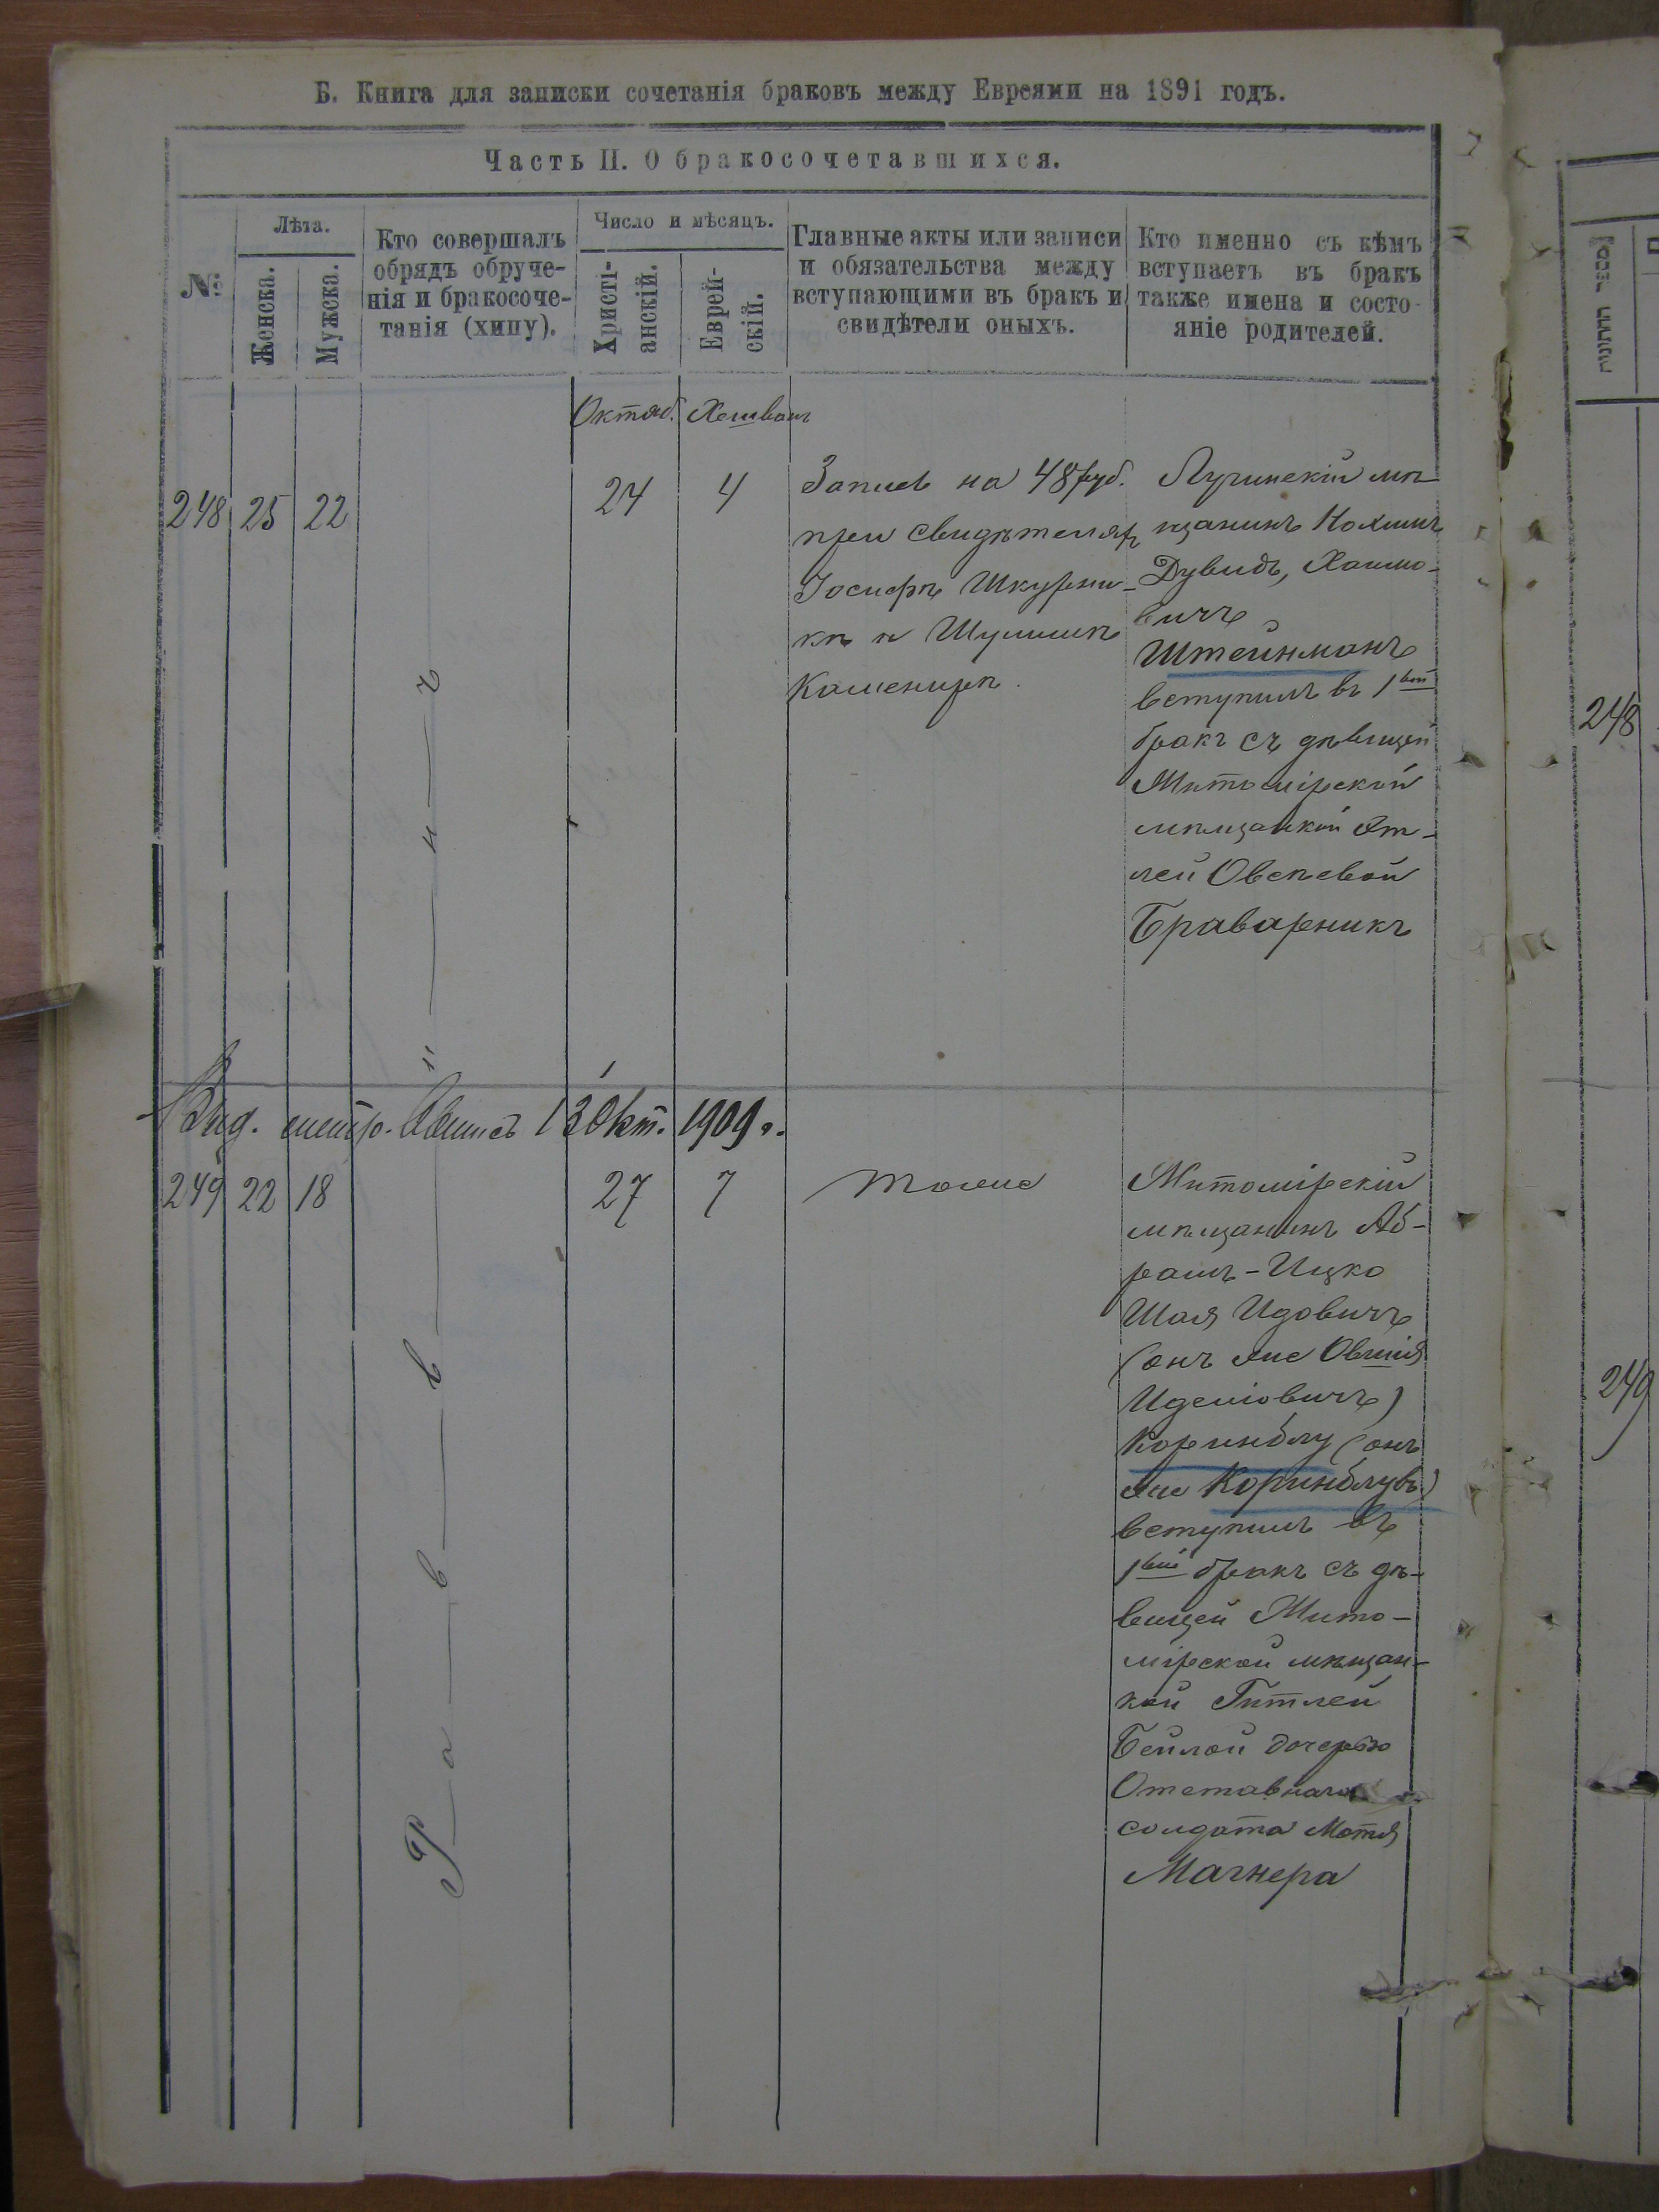 Б. Книга для записки сочетанія браковъ между Евреями на 1891 годъ.
Часть II. О бракосочетавшихся.
№
Лѣта.
Женска.
Мужска.
Кто совершалъ
обрядъ обруче-
нія и бракосоче-
танія (хипу).
Число и мѣсяцъ.
Христі-
анскій.
Еврей-
скій.
Главные акты или записи
и обязательства между
вступающими въ бракъ и
свидѣтели оныхъ.
Кто именно съ кѣмъ
вступаетъ въ бракъ
также имена и состо-
яніе родителей.
Октяб. Хешванъ
248 25 22
24 4
Запись на 48 руб.
при свидѣтеляхъ
Іосифѣ Шкурни-
кѣ и Шулимѣ
Каменирѣ.
Лугинскій мѣ
щанинъ Нахманъ
Дувидъ, Хаимо-
вичъ
Штейнманъ
вступилъ въ 1вый
бракъ съ дѣвицей
Житомірской
мѣщанкой Эт-
лей Овсѣевой
Браварникъ
Выд. метр. 13 Окт. 1909 г.
249 22 18
27 7
тоже
Житомірскій
мѣщанинъ Аб-
рамъ-Ицко
Шая Идовичъ
(онъ же Овшія
Иделіовичъ)
Коринблу (онъ
же Коринблувъ)
вступилъ въ
1вый бракъ съ дѣ-
вицей Жито-
мірской мѣщан-
кой Гитлей
Бейлой дочерью
Отставнаго
солдата Мотя
Магнера
Раввинъ
248
249